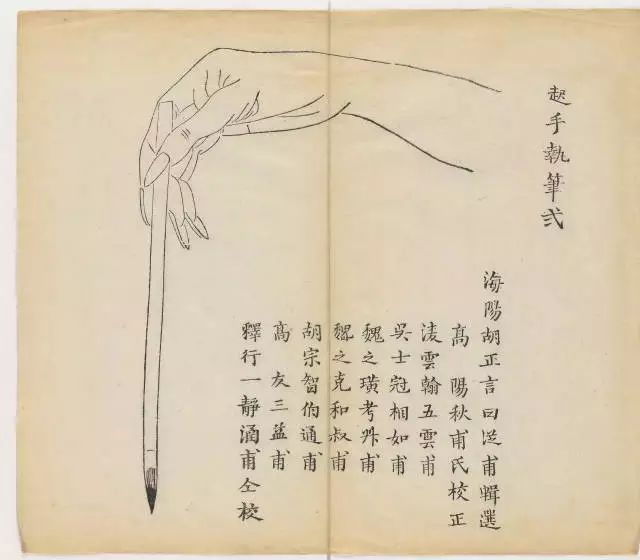 起手執筆式
海陽胡正言曰從甫輯選
髙陽秋甫氏校正
淩雲翰五雲甫
吳士冠相如甫
魏之璜考叔甫
魏之克和叔甫
胡宗智伯通甫
髙友三益甫
釋行一靜涵甫仝校